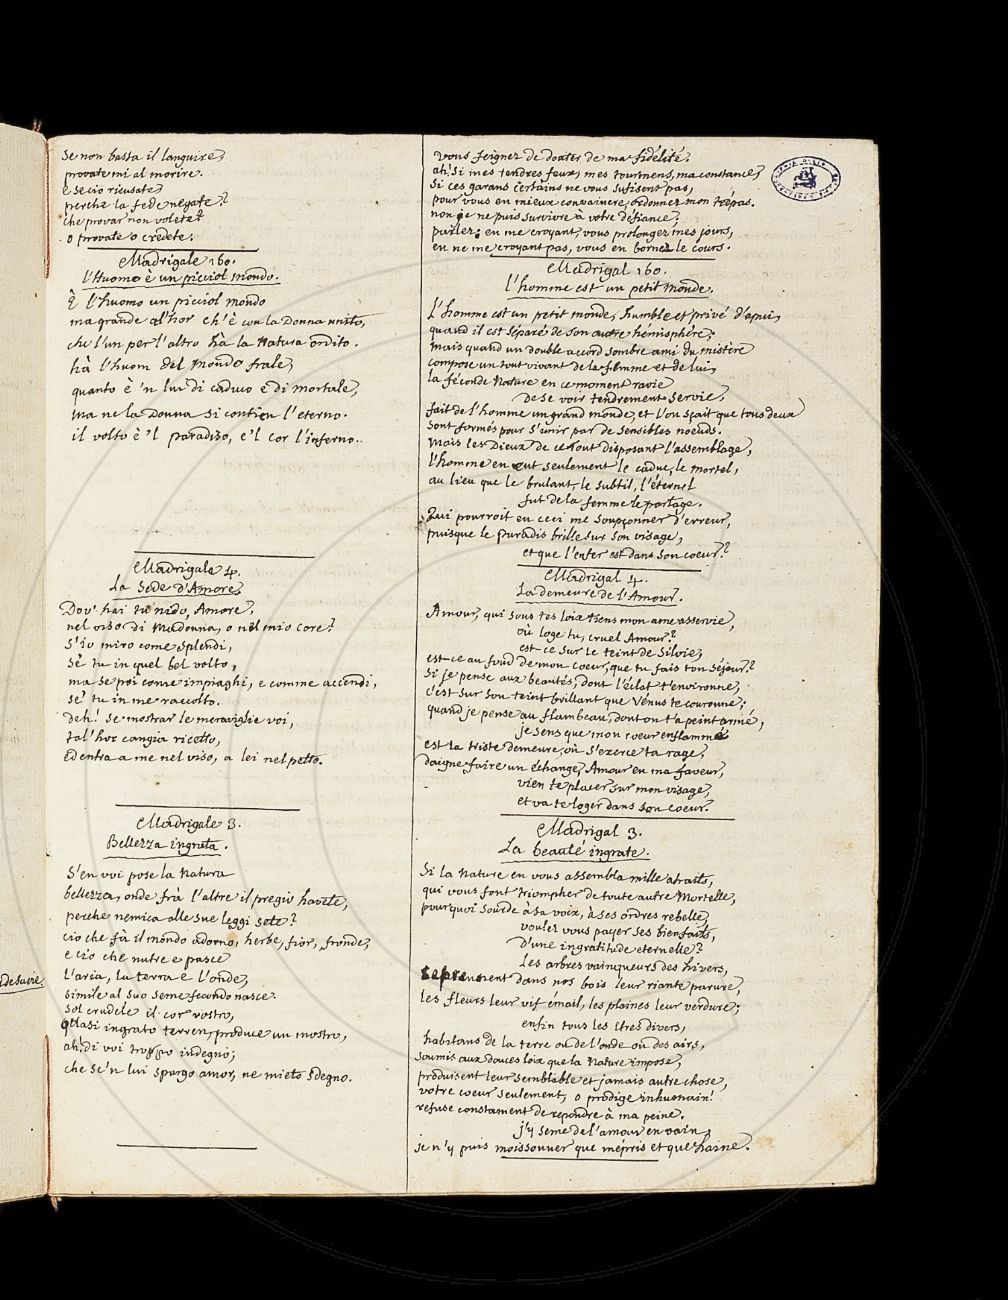 Se non basta il languire,
provate mi al morire.
e se cio ricusate,
perche la fede negate?
che provar non volete?
o provate o credete.
Madrigale 160.
l'Huomo è un picciol mondo.
È l'huomo un picciol mondo
ma grande al'hor ch'è con la Donna unito,
che l'un per l'altro hà la Natura ordito.
hà l'huom del mondo frale,
quanto è 'n lui di caduco e di mortale,
ma ne la Donna si contien l'eterno.
il volto è 'l paradiso, e 'l cor l'inferno.
Madrigale 4.
la Sede d'Amore.
Dov' hai tu nido, Amore,
nel viso di Madonna, o nel mio core?
S'io miro come splendi,
sè tu in quel bel volto,
ma se poi come impiaghi, e comme accendi,
se' tu in me raccolto.
deh! se mostrar le meraviglie voi,
tal'hor cangia ricetto,
ed entra a me nel viso, a lei nel petto.
Madrigale 3.
Bellezza ingrata.
S'en voi pose la Natura
bellezza, onde frà l'altre il pregio havete,
perche nemica alle sue leggi sete?
cio che fà il mondo adorno, herbe, fior, fronde,
e cio che nutre e pasce
l'aria, la terra e l'onde,
simile al suo seme fecondo nasce.
Sol crudele il cor vostro,
quasi ingrato terren, produce un mostro,
ah! di voi troppo indegno;
che se'n lui spargo amor, ne mieto sdegno.
vous feignez de douter de ma fidélité.
ah! Si mes tendres feux, mes tourmens, ma constance,
Si ces garans certains ne vous sufisent pas,
pour vous en mieux convaincre, ordonnez mon trépas.
non je ne puis survivre à votre défiance;
parlez; en me croyant, vous prolongez mes jours,
en ne me croyant pas, vous en bornez le cours.
Madrigal 160.
l'homme est un petit monde.
L'homme est un petit monde, humble et privé d'apui,
quand il est séparé de son autre hémisphére;
mais quand un double accord sombre ami du mistère
compose un tout vivant de la femme et de lui,
la féconde Nature en ce moment ravie
De se voir tendrement servie,
fait de l'homme un grand monde, et l'on sçait que tous deux
sont formés pour s'unir par de sensibles noeuds.
Mais les Dieux de ce tout disposant l'assemblage,
l'homme en eut seulement le caduc, le mortel,
au lieu que le brulant, le subtil, l'éternel
fut de la femme le partage.
Qui pourroit en ceci me soupçonner d'erreur,
puisque le paradis brille sur son visage,
et que l'enfer est dans son coeur?
Madrigal 4.
La demeure de l'Amour.
Amour, qui sous tes loix tiens mon ame asservie,
où loge tu, cruel Amour?
est ce sur le teint de Silvie,
est-ce au fond de mon coeur, que tu fais ton séjour?
Si je pense aux beautés, dont l'éclat t'environne,
c'est sur son teint brillant que Vénus te couronne;
quand je pense au flambeau, dont on t'a peint armé,
je sens que mon coeur enflammé
est la triste demeure, où s'exerce ta rage,
daigne faire un échange, Amour en ma faveur,
vien te placer sur mon visage,
et va te loger dans son coeur.
Madrigal 3.
La beauté ingrate.
Si la Nature en vous assembla mille atraits,
qui vous font triompher de toute autre Mortelle,
pourquoi sourde à sa voix, à ses ordres rebelle,
voulez vous payer ses bienfaits,
D'une ingratitude eternelle?
Les arbres vainqueurs des hivers,
reprennent dans nos bois leur riante parure,
les fleurs leur vif émail, les plaines leur verdure;
enfin tous les êtres divers,
habitans de la terre ou de l'onde ou des airs,
soumis aux douces loix que la Nature impose,
produisent leur semblable et jamais autre chose,
votre coeur seulement, o prodige inhumain!
refuse constament de repondre à ma peine.
j'y seme de l'amour en vain,
je n'y puis moissonner que mépris et que haine.